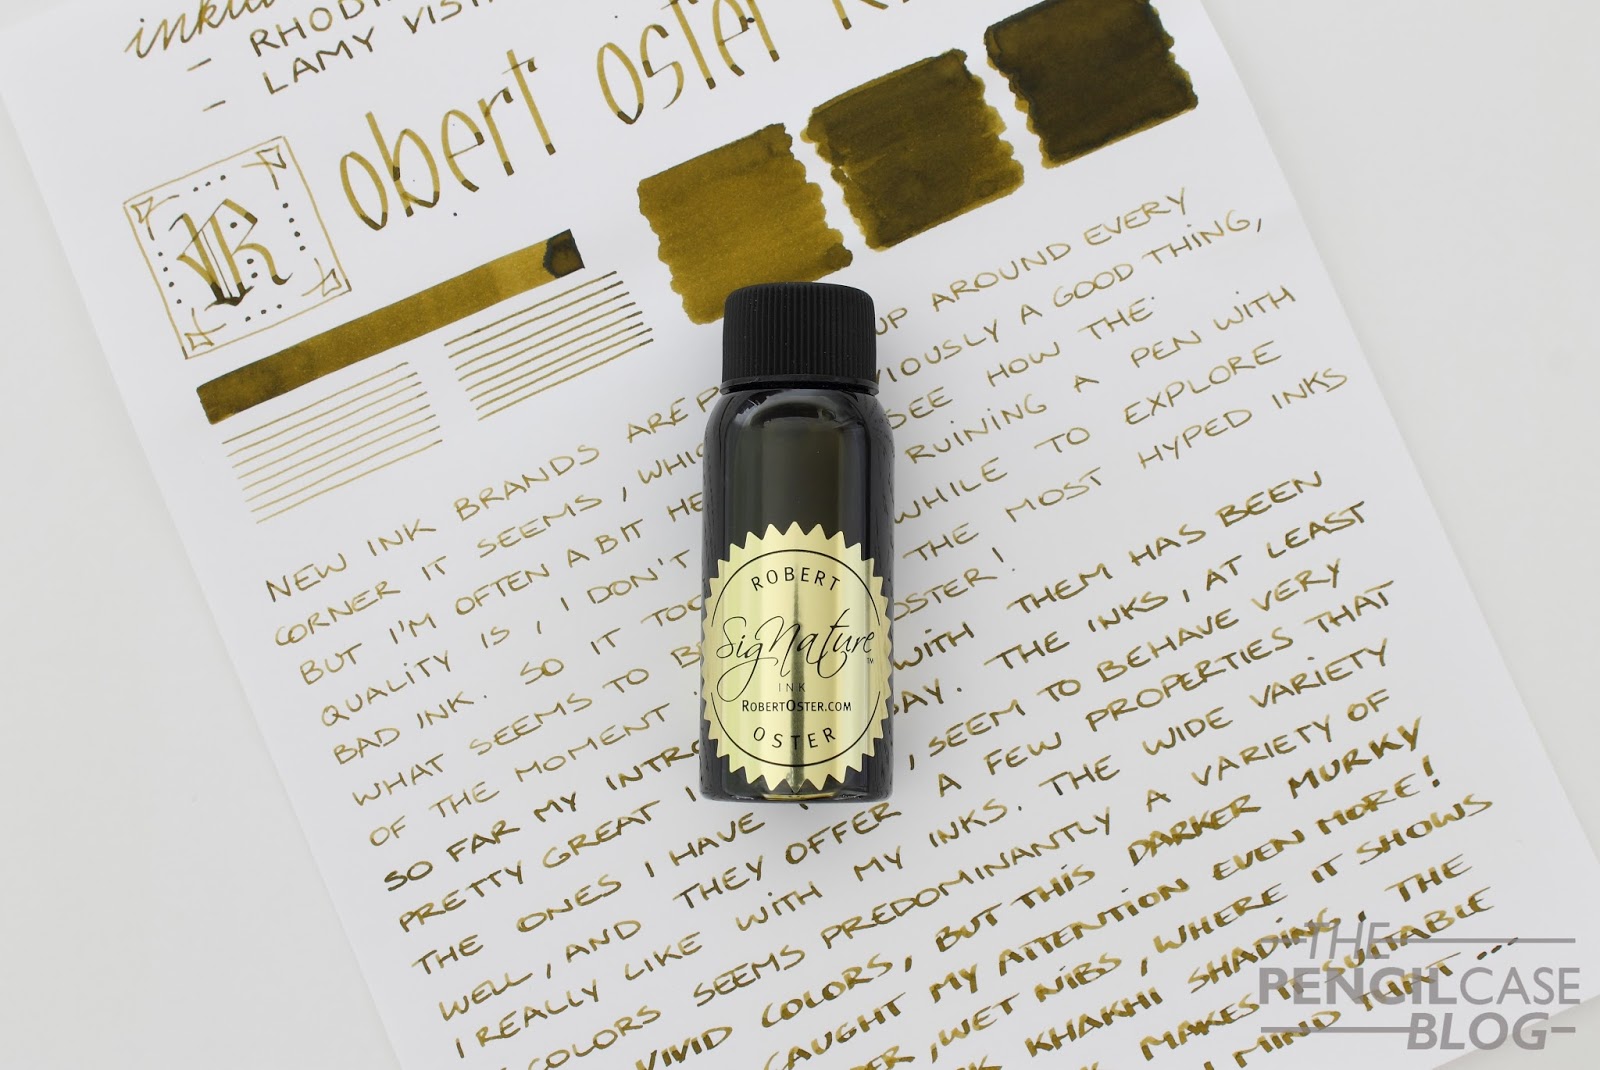 RHODI
- LAMY VIST
Robert Oster
R
NEW INK BRANDS ARE P UP AROUND EVERY
CORNER IT SEEMS, WHIC VIOUSLY A GOOD THING,
BUT I'M OFTEN A BIT HE SEE HOW THE
QUALITY IS, I DON'T RUINING A PEN WITH
BAD INK. SO IT TOO WHILE TO EXPLORE
WHAT SEEMS TO B THE MOST HYPED INKS
OF THE MOMENT OSTER!
SO FAR MY INTRO WITH THEM HAS BEEN
PRETTY GREAT I SAY. THE INKS, AT LEAST
THE ONES I HAVE , SEEM TO BEHAVE VERY
WELL, AND THEY OFFER A FEW PROPERTIES THAT
I REALLY LIKE WITH MY INKS. THE WIDE VARIETY
COLORS SEEMS PREDOMINANTLY A VARIETY OF
VIVID COLORS, BUT THIS DARKER MURKY
CAUGHT MY ATTENTION EVEN MORE!
DER, WET NIBS, WHERE IT SHOWS
KHAKHI SHADING, THE
MAKES IT SUITABLE
I MIND THAT ...
ROBERT
SigNature™
INK
ROBERTOSTER.COM
OSTER
THE
PENCILCASE
BLOG